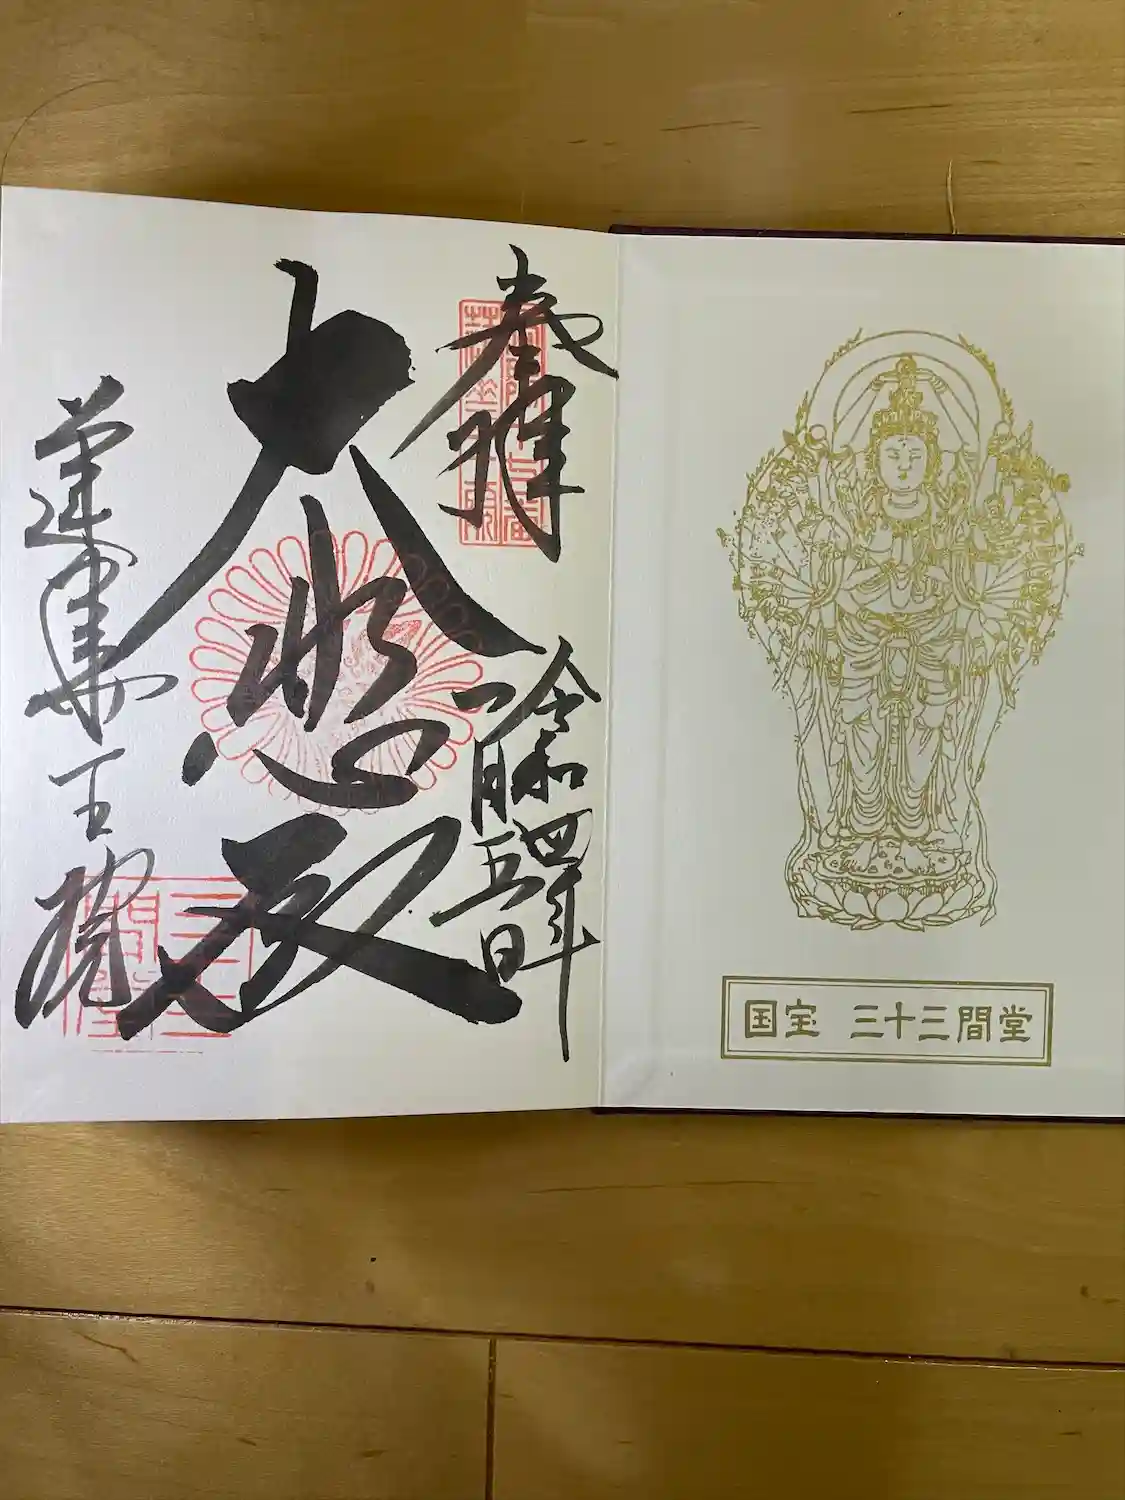 国宝 三十三間堂
奉拝
令和四年
一月五日
大悲殿
蓮華王院